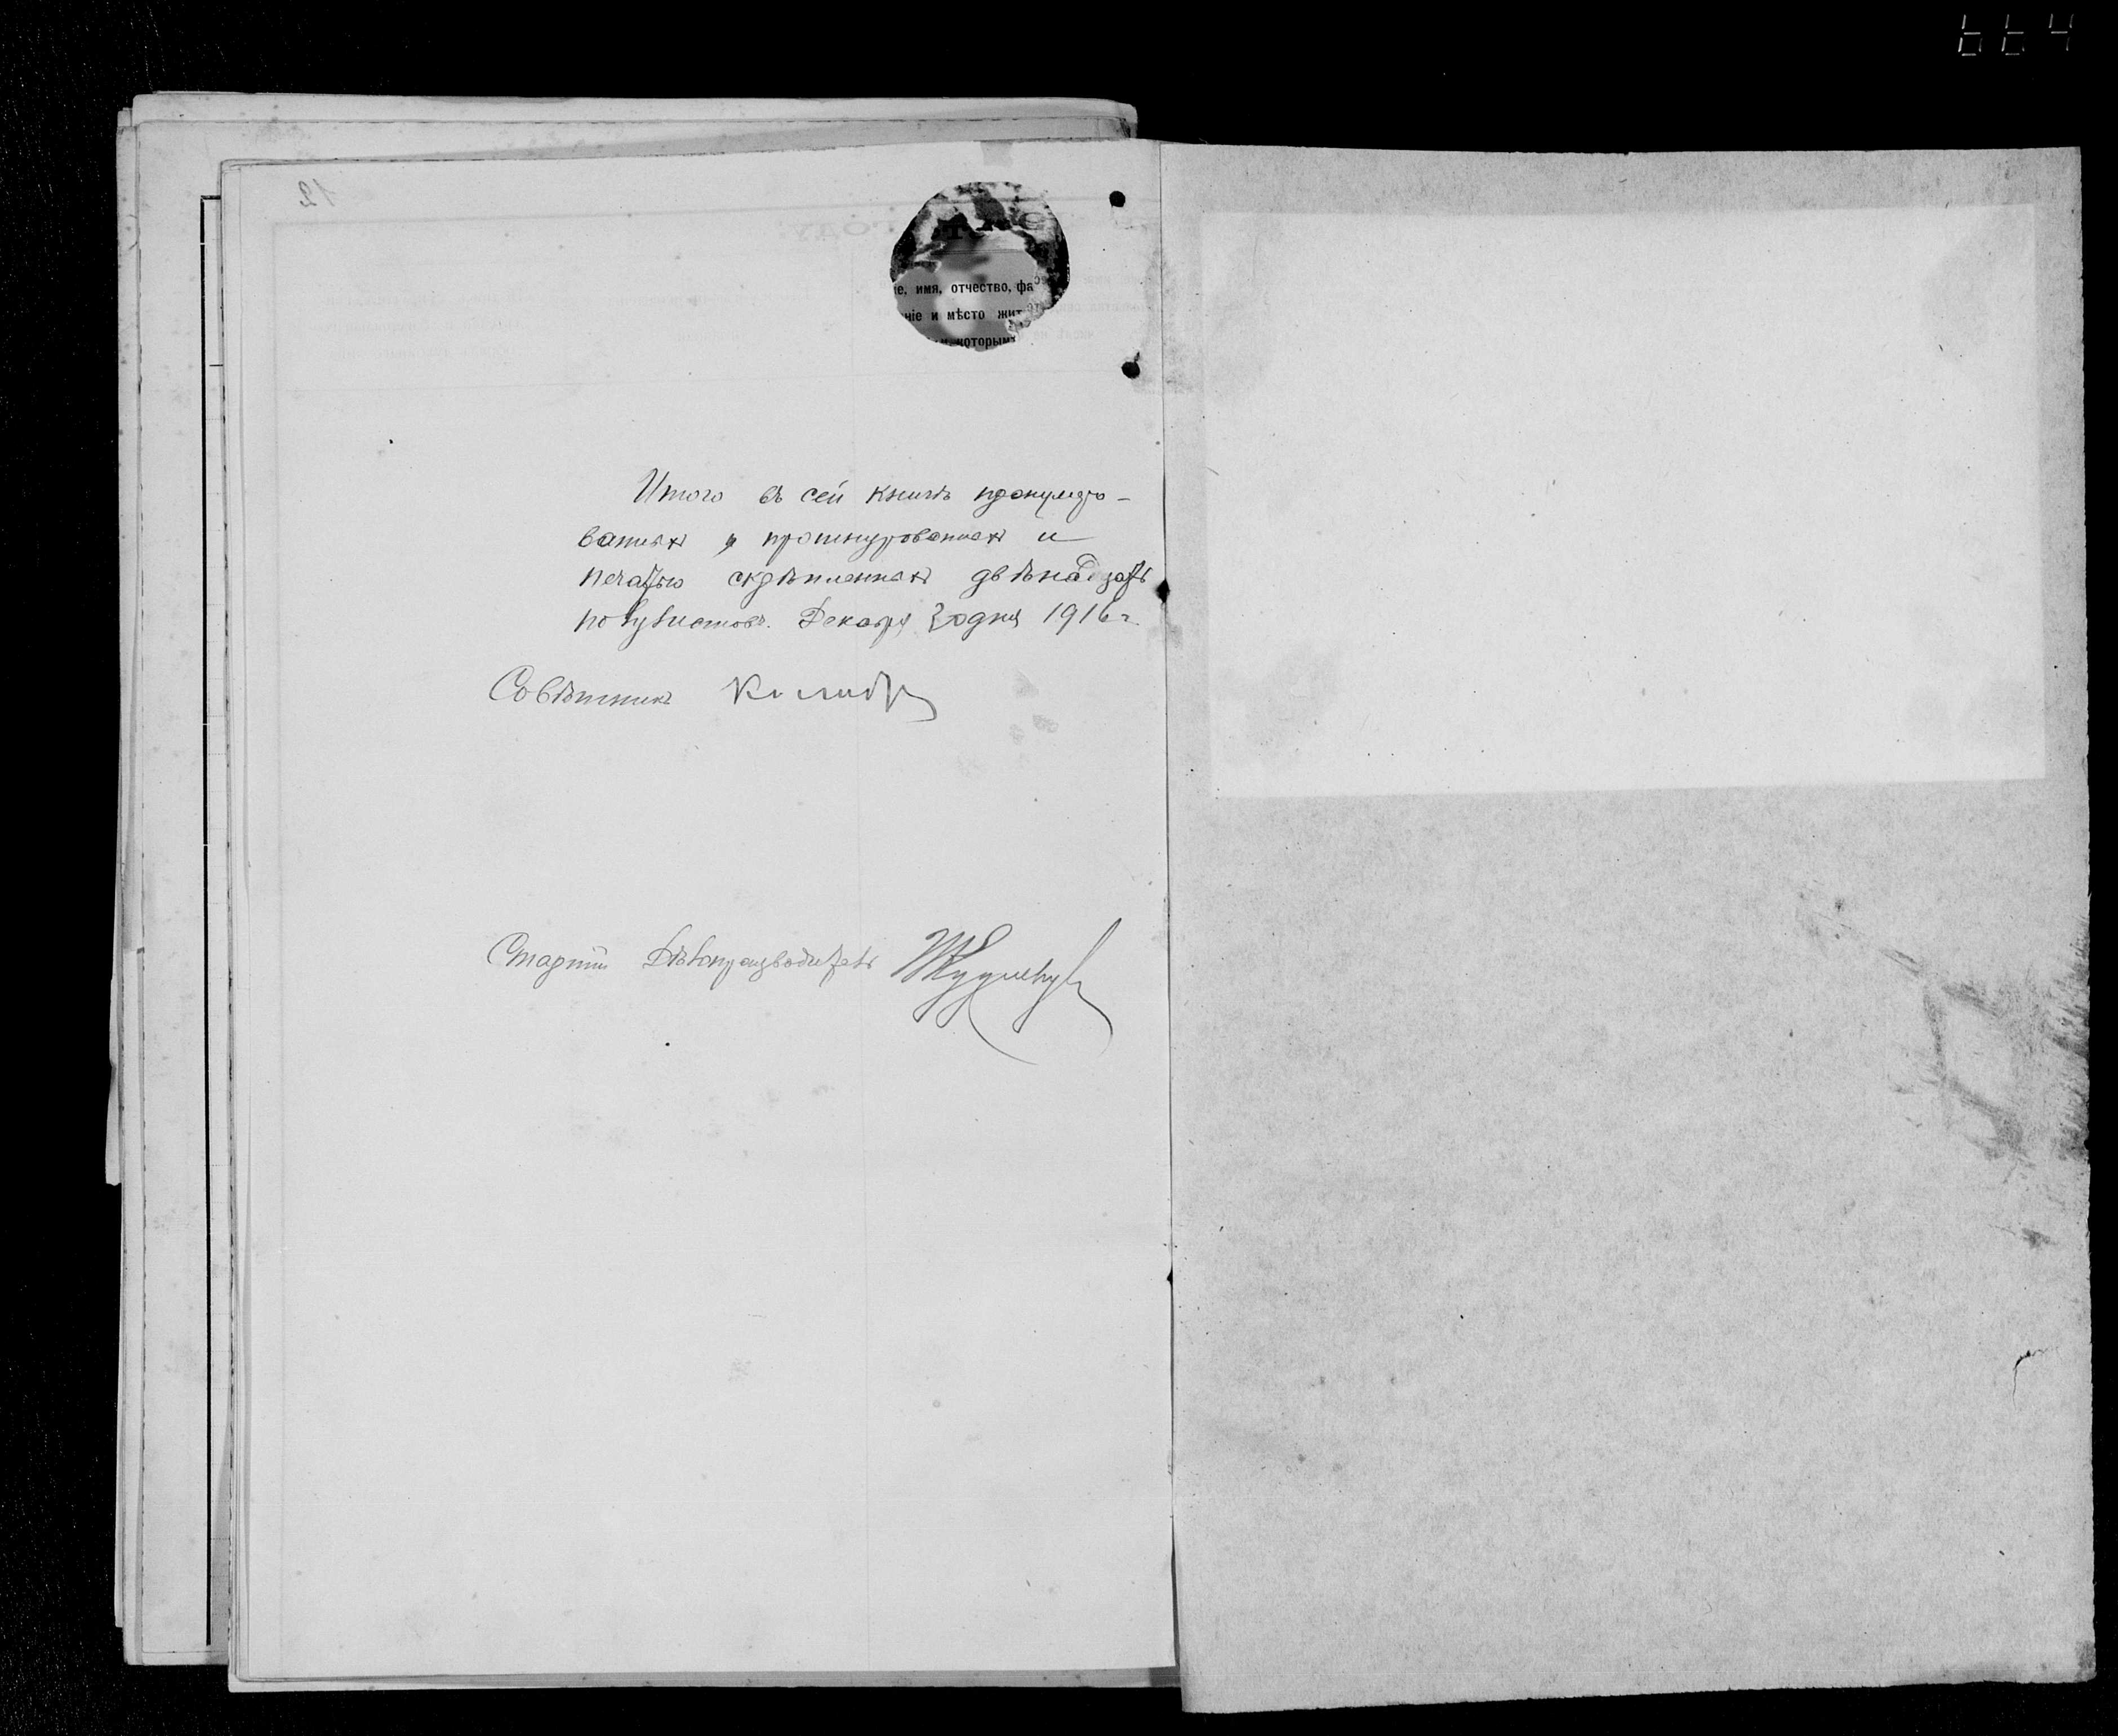 е, имя, отчество, фа
ніе и мѣсто жит
которым
Итого въ сей книгѣ пронумеро-
ванныхъ и прошнурованныхъ и
печатью скрѣпленныхъ двѣнадцать
полулистовъ. Декабря 30 дня 1916 г.
Совѣтникъ
Старшій Дѣлопроизводитель